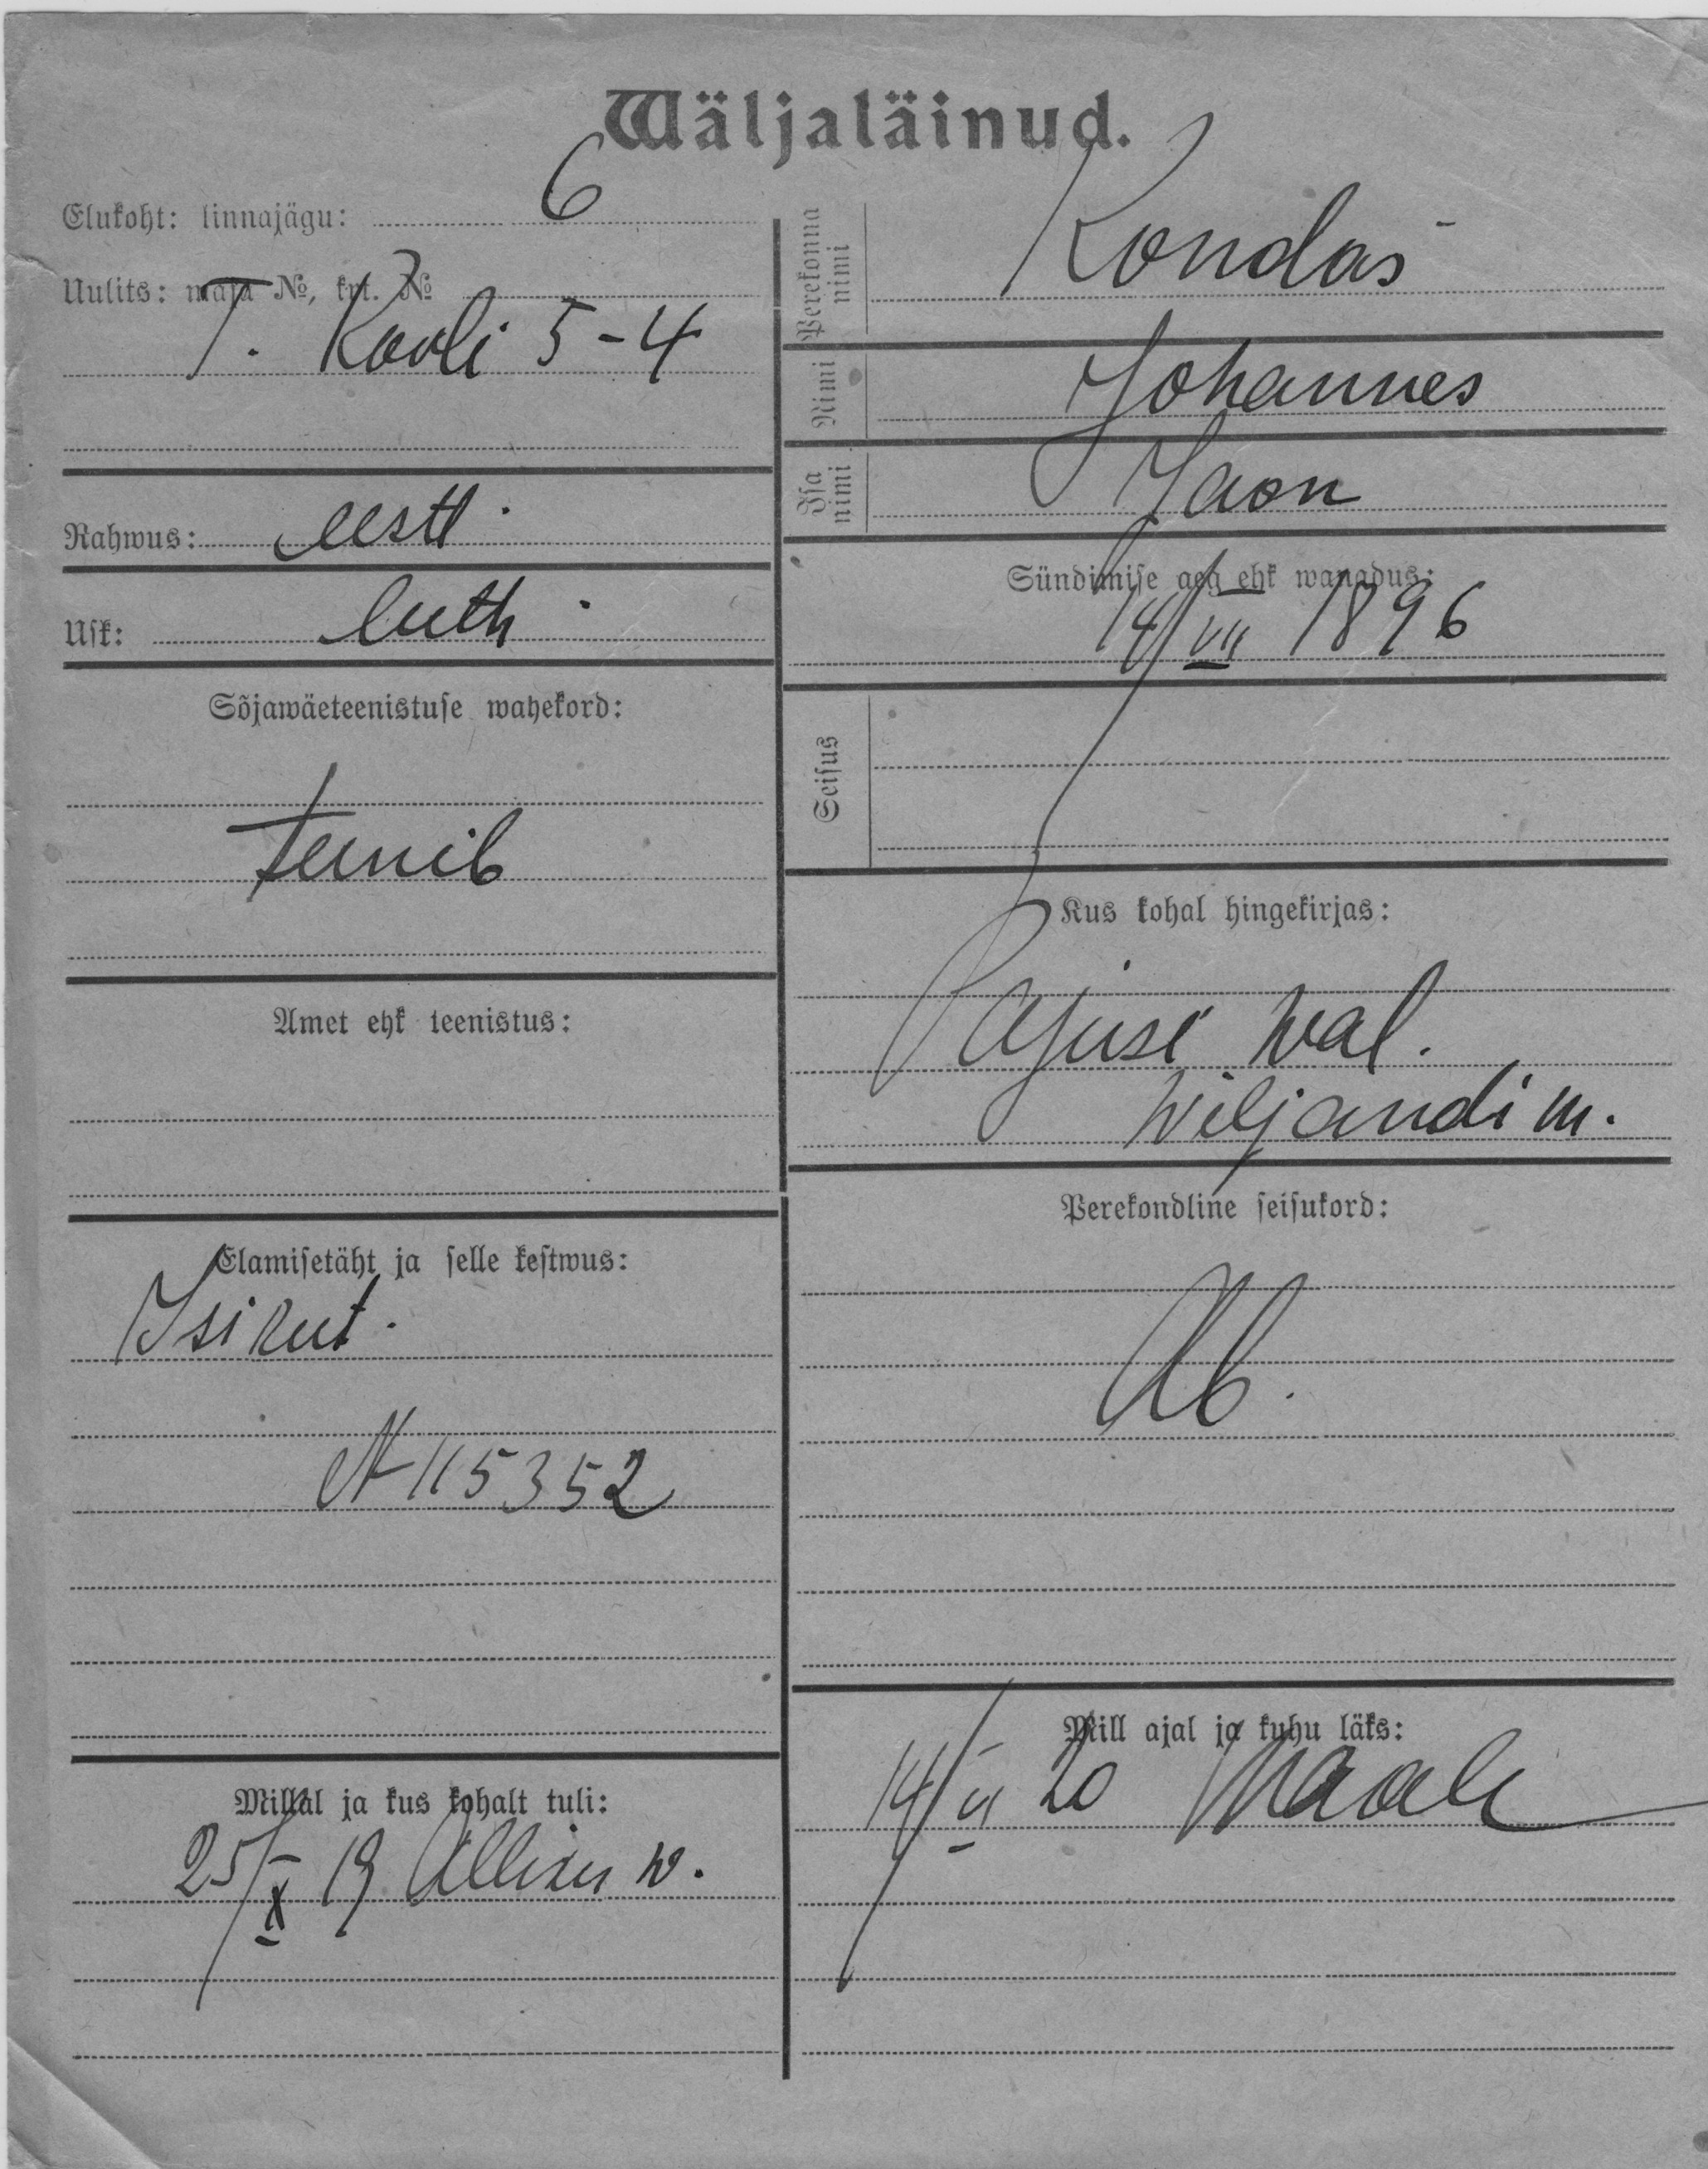 Wäljaläinud.
Elukoht: linnajägu: 6
Uulits: maja №, krt. №
T. Kooli 5-4
Rahwus: eesti
Usk: luth
Sõjawäeteenistuse wahekord:
teenib
Amet ehk teenistus:
Elamisetäht ja selle kestwus:
Isikut.
N 115352
Millal ja kus kohalt tuli:
25/X 19 w.
Perekonna nimi Kondas
Nimi Johannes
Isa nimi Jaan
Sündimise aeg ehk wanadus:
14/VII 1896
Seisus
Kus kohal hingekirjas:
Pajusi wal.
Wiljandi m.
Perekondline seisukord:
Ab.
Mill ajal ja kuhu läks:
20 Maale